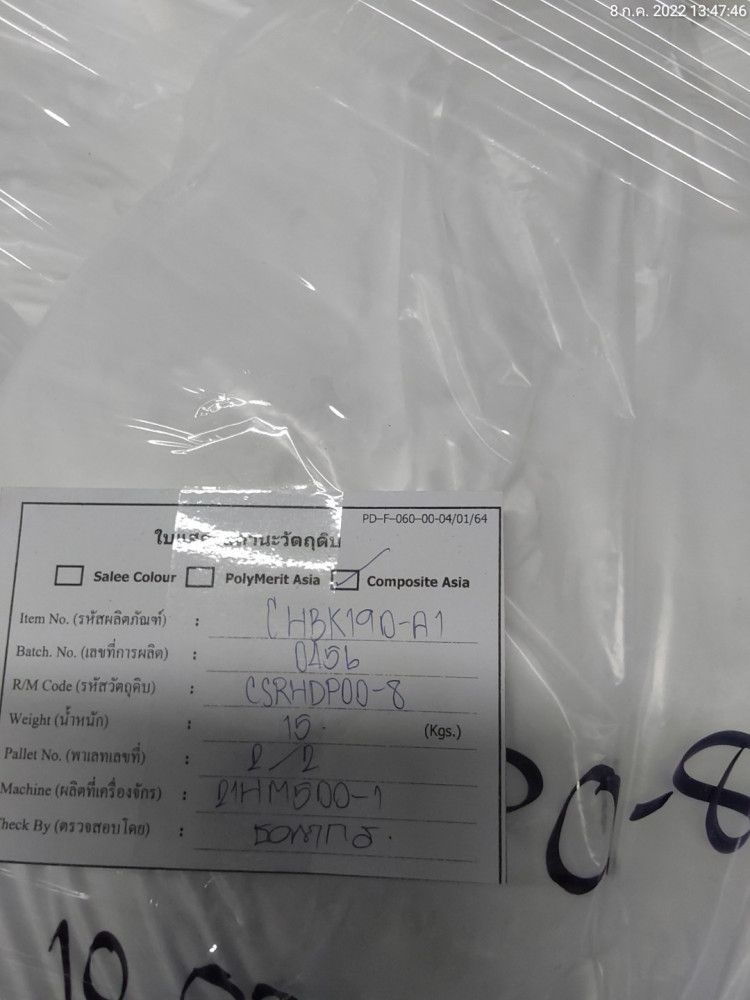 8 ก.ค. 2022 13:47:46
PD-F-060-00-04/01/64
Salee Colour PolyMerit Asia Composite Asia
Item No. (รหัสผลิตภัณฑ์) : CHBK190-A1
Batch. No. (เลขที่การผลิต) : 0456
R/M Code (รหัสวัตถุดิบ) : CSRHDP00-8
Weight (น้ำหนัก) : 15. (Kgs.)
Pallet No. (พาเลทเลขที่) : 2/2
Machine (ผลิตที่เครื่องจักร) : 21HM500-1
heck By (ตรวจสอบโดย) :
0-8
10